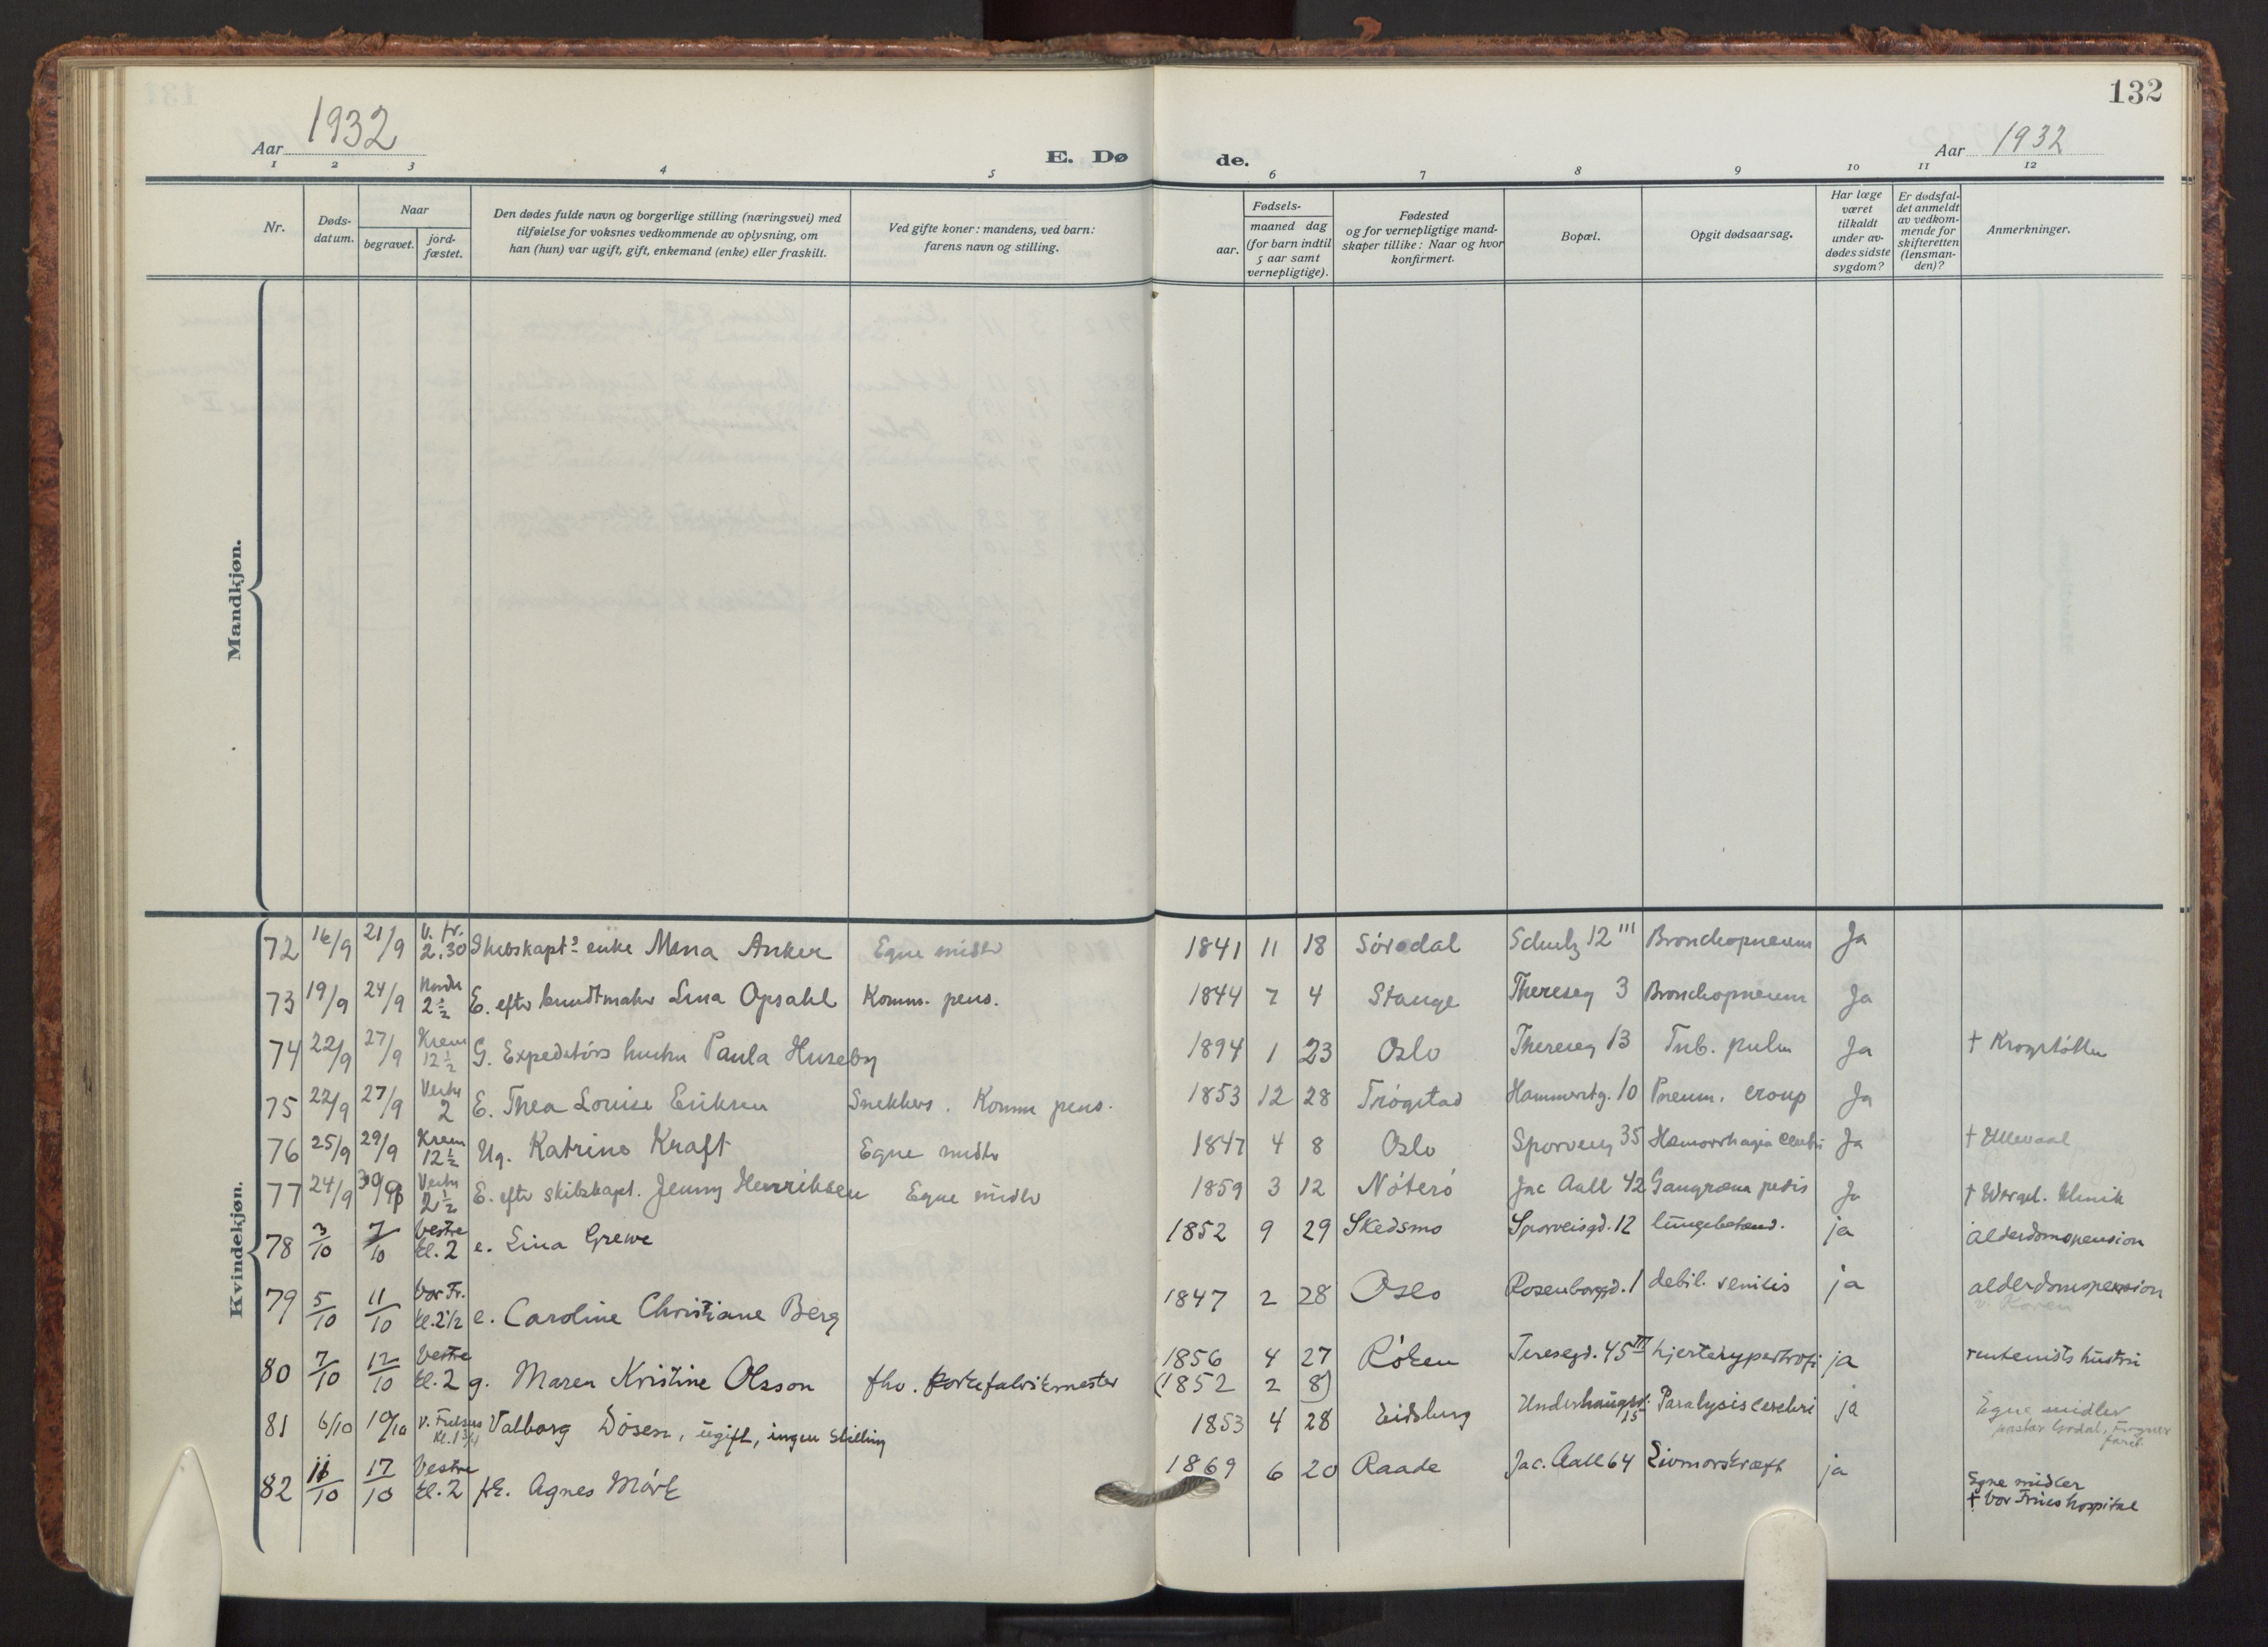 132
Aar 1932
E. Dø de.
Aar 1932
1 2 3 4 5 6 7 8 9 10 11 12
Nr.
Døds-
datum.
Naar
begravet.
jord-
fæstet.
Den dødes fulde navn og borgerlige stilling (næringsvei) med
tilføielse for voksnes vedkommende av oplysning, om
han (hun) var ugift, gift, enkemand (enke) eller fraskilt.
Ved gifte koner: mandens, ved barn:
farens navn og stilling.
Fødsels-
aar.
maaned dag
(for barn indtil
5 aar samt
vernepligtige).
Fødested
og for vernepligtige mand-
skaper tillike: Naar og hvor
konfirmert.
Bopæl.
Opgit dødsaarsag.
Har læge
været
tilkaldt
under av-
dødes sidste
sygdom?
Er dødsfal-
det anmeldt
av vedkom-
mende for
skifteretten
(lensman-
den)?
Anmerkninger.
Mandkjøn.
Kvindekjøn.
72 16/9 21/9 V. fr. 2.30 Skibskapt.s enke Mena Anker Egne midlr 1841 11 18 Sörodal Schulz 12 III Bronchopneum Ja
73 19/9 24/9 Nordre 2 1/2 E. eftr bundtmakr Lina Opsahl Komm. pens. 1844 7 4 Stange Thereseg 3 Bronchopneum Ja
74 22/9 27/9 Krem 12 1/2 G. Expeditörs hustru Paula Huseby 1894 1 23 Oslo Thereseg 13 Tub. pulm Ja † Krogstötten
75 22/9 27/9 Vestre 2 E. Thea Louise Eriksen Snekkers. Komm pens. 1853 12 28 Trögstad Hammerstg. 10 Pneum. croup Ja
76 25/9 29/9 Krem 12 1/2 Ug. Katrine Kraft Egne midlr 1847 4 8 Oslo Sporveisg 35 Hæmorrhagia cerebri Ja † Ullevaal
77 24/9 30/9 Vestre 2 1/2 E. eftr skibskapt. Jenny Henriksen Egne midlr 1859 3 12 Nöterö Jac Aall 42 Gangræna pedis Ja † Wergel. Klinik
78 3/10 7/10 Vestre kl. 2 e. Lina Grewe 1852 9 29 Skedsmo Sporveisgd. 12 lungebetend. ja alderdomspension
79 5/10 11/10 Vor Fr. kl. 2 1/2 e. Caroline Christiane Berg 1847 2 28 Oslo Rosenborggd. 1 debil. senilis ja alderdomspension
v. Koren
80 7/10 12/10 Vestre kl. 2 g. Maren Kristine Olsson fhv. korkefabrikmester 1856 4 27 Röken Teresegd. 45 III hjertehypertrofi ja rentenists hustru
(1852 2 8)
81 6/10 10/10 V. Frelsers kl. 1 3/4 Valborg Dösen, ugift, ingen stilling 1853 4 28 Eidsberg Underhaugsv. 15 Paralysis cerebri ja Egne midler
pastor Gordal, Frogner
foret.
82 11/10 17/10 Vestre kl. 2 frk. Agnes Mörk 1869 6 20 Raade Jac. Aall 64 Livmorskræft ja Egne midler
† Vor Frues hospital